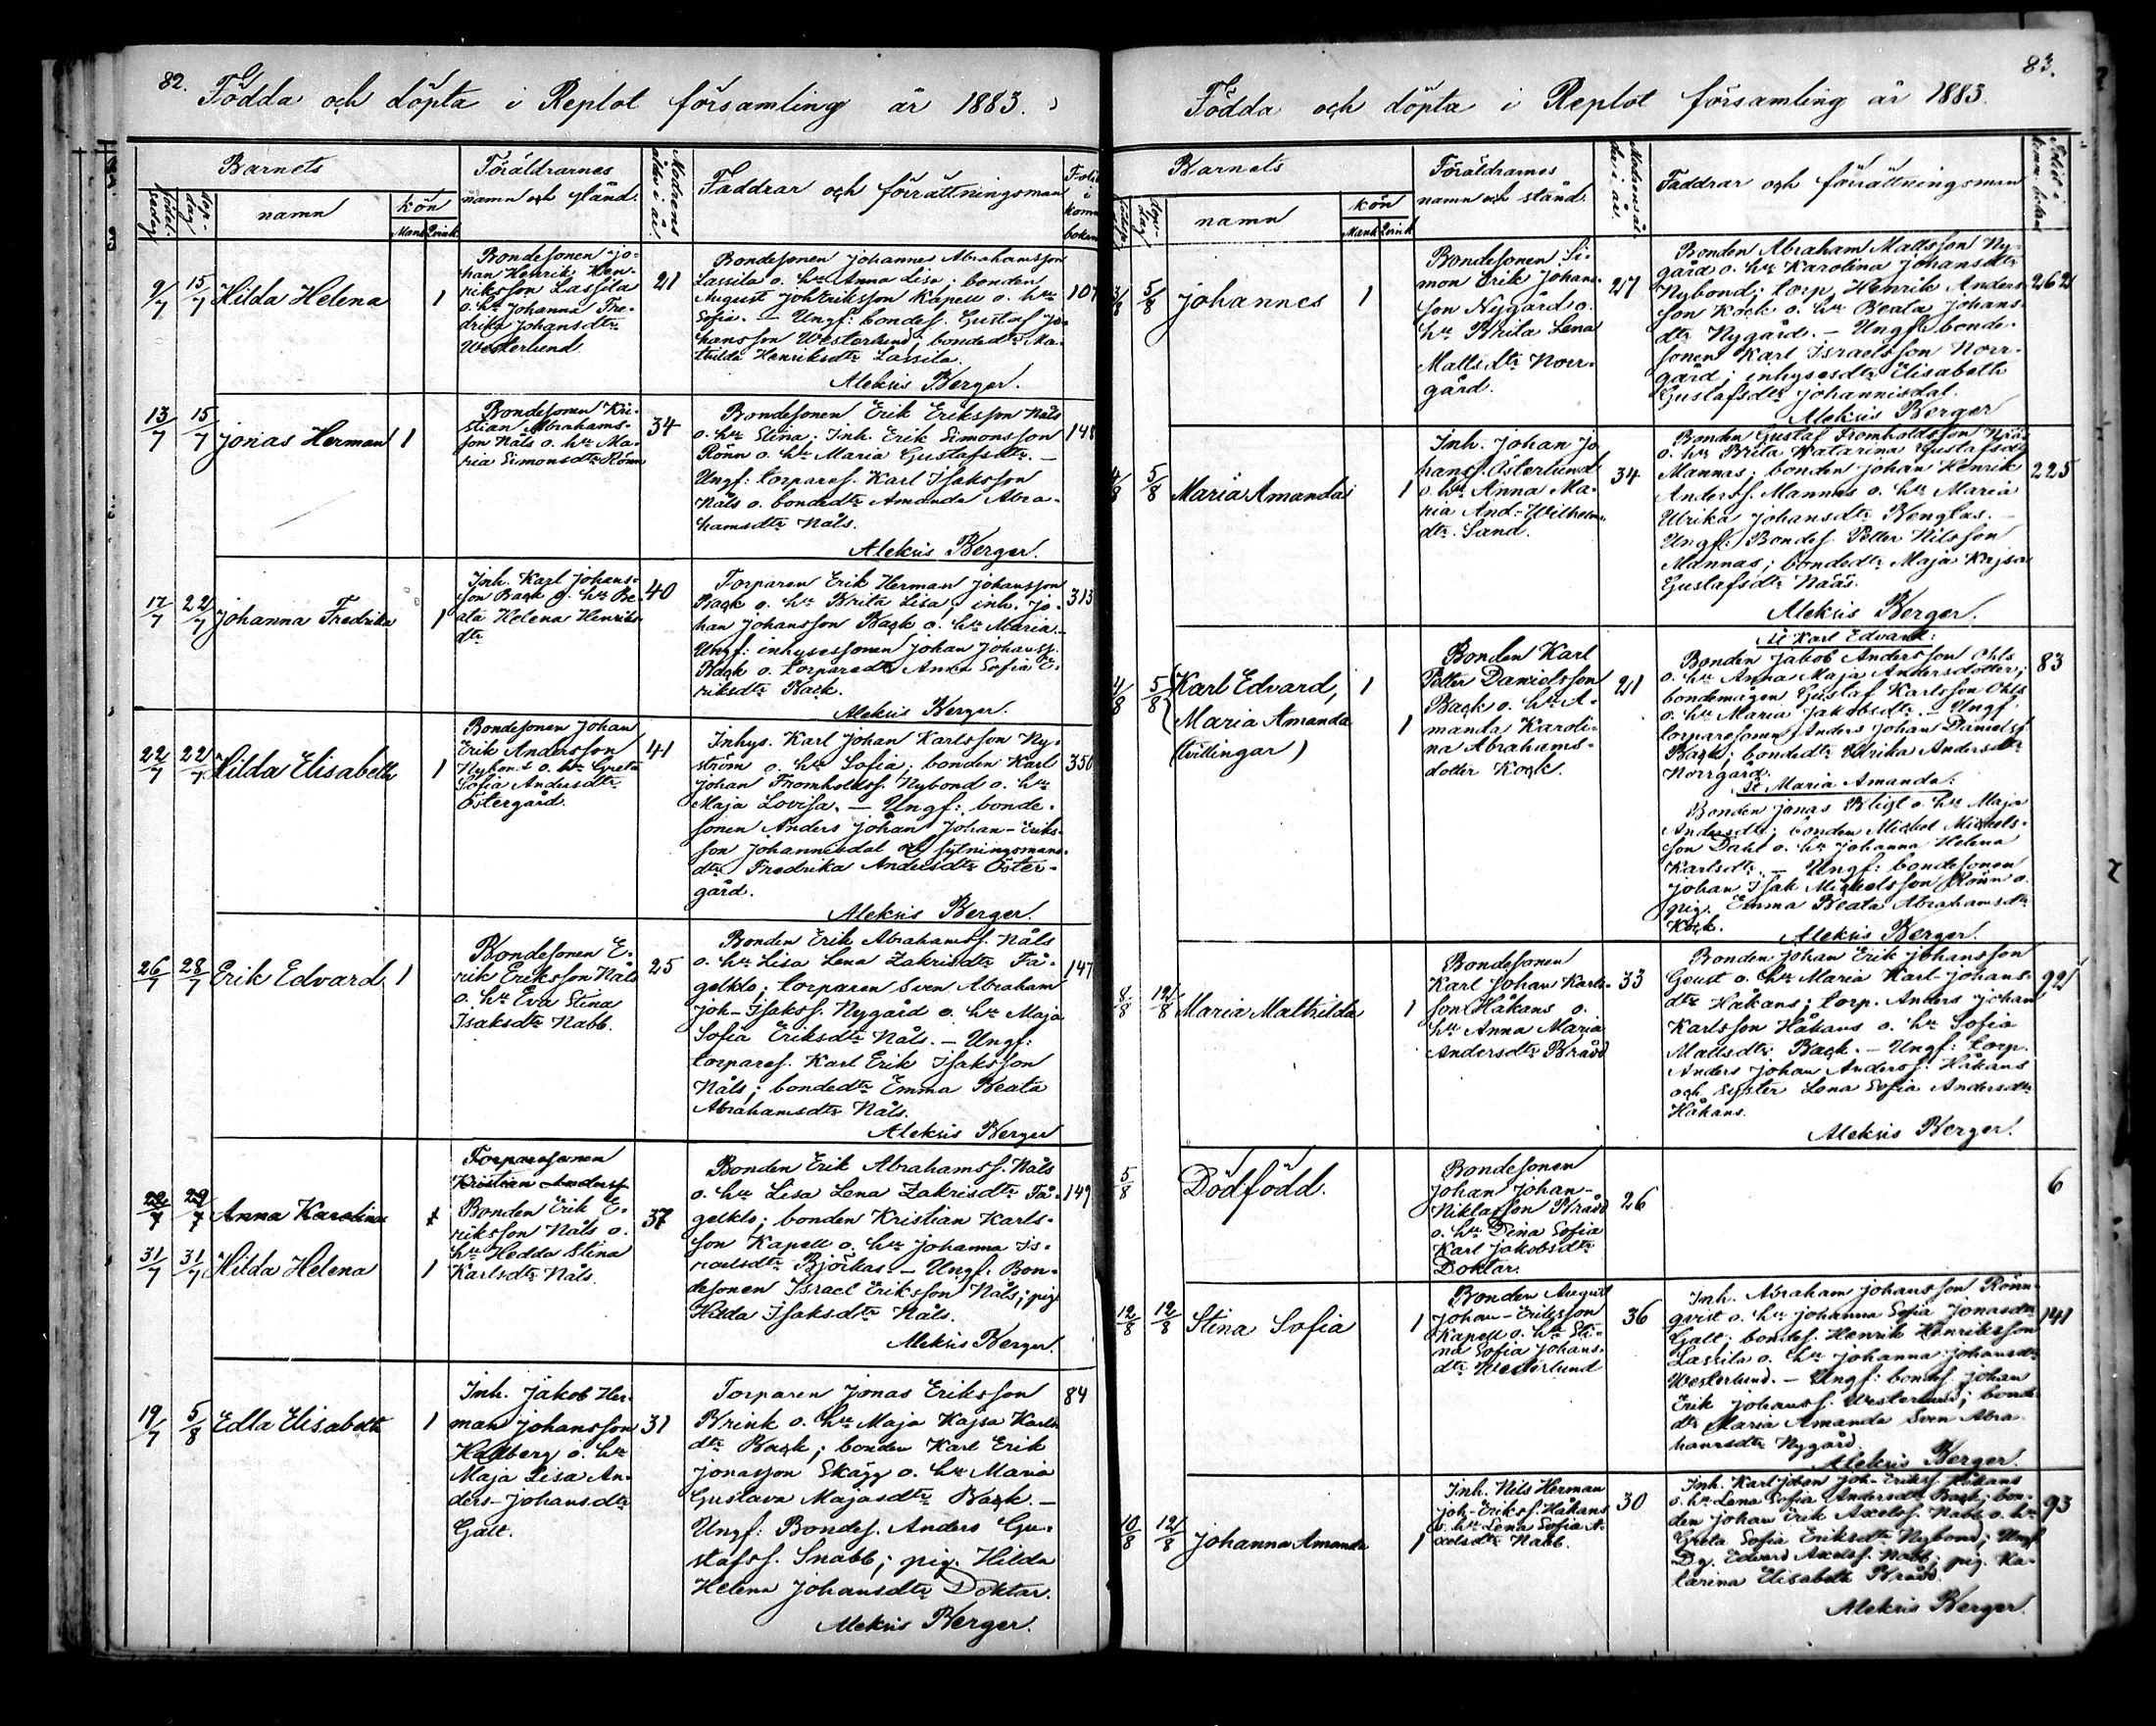 82.
Födda och döpta i Replot församling år 1883.
Barnets
Födelsedag
Dopdag
namn
kön
Mank.
Qvink.
Föräldrarnes
namn och stånd.
Modrens
ålder i år.
Faddrar och förrättningsman
Folio
i
komm.
boken
9/7
15/7
Hilda Helena
1
Bondesonen Jo-
han Henrik Hen-
riksson Lassila
o. h. hu Johanna Fre-
drika Johansdtr
Westerlund.
21
Bondesonen Johannes Abrahamsson
Lassila o. hu Anna Lisa; bonden
August Joh Eriksson Kapell o. hu
Sofia. — Ungf: bondes. Gustaf Jo-
hansson Westerlund; bondedtr Ma-
thilda Henriksdtr Lassila.
Aleksis Berger.
107
13/7
15/7
Jonas Herman
1
Bondesonen Kri-
stian Abrahams-
son Nåls o. hu Ma-
ria Simonsdtr Rönn
34
Bondesonen Erik Eriksson Nåls
o. hu Stina; Inh. Erik Simonsson
Rönn o. hu Maria Gustafsdtr. —
Ungf: torpares. Karl Isaksson
Nåls o. bondedtr Amanda Abra-
hamsdtr Nåls.
Aleksis Berger.
148
17/7
22/7
Johanna Fredrika
1
Inh. Karl Johans-
son Back o. hu Be-
ata Helena Henriks-
dtr
40
Torparen Erik Herman Johansson
Back o. hu Brita Lisa; inh. Jo-
han Johansson Back o. hu Maria. —
Ungf: inhysessonen Johan Johanss.
Back o. torparedtr Anna Sofia E-
riksdtr Back.
Aleksis Berger.
313
22/7
22/7
Hilda Elisabeth
1
Bondesonen Johan
Erik Andersson
Nybond o. hu Greta
Sofia Andersdtr
Östergård.
41
Inhys. Karl Johan Karlsson Ny-
ström o. hu Sofia; bonden Karl
Johan Fromholdss. Nybond o. hu
Maja Lovisa. — Ungf: bonde-
sonen Anders Johan Johan-Eriks-
son Johannisdal och sytningsmans-
dtr Fredrika Andersdtr Öster-
gård.
Aleksis Berger.
350
26/7
28/7
Erik Edvard
1
Bondesonen E-
rik Eriksson Nåls
o. hu Eva Stina
Isaksdtr Nabb.
25
Bonden Erik Abrahamss. Nåls
o. hu Lisa Lena Zakrisdtr Få-
gelklo; torparen Sven Abraham
Joh-Isakss. Nygård o. hu Maja
Sofia Eriksdtr Nåls. — Ungf:
torpares. Karl Erik Isaksson
Nåls; bondedtr Emma Beata
Abrahamsdtr Nåls.
Aleksis Berger
147
29/7
Anna Karolina
1
Torparesonen
Kristian Anderss.
31/7
31/7
Hilda Helena
1
Bonden Erik E-
riksson Nåls o.
hu Hedda Stina
Karlsdtr Nåls.
37
Bonden Erik Abrahamss. Nåls
o. hu Lisa Lena Zakrisdtr Få-
gelklo; bonden Kristian Karls-
son Kapell o. hu Johanna Is-
raelsdtr Björkas. — Ungf. Bon-
desonen Israel Eriksson Nåls; pig.
Hilda Isaksdtr Nåls.
Aleksis Berger.
149
19/7
5/8
Edla Elisabeth
1
Inh. Jakob Her-
man Johansson
Hallberg o. hu
Maja Lisa An-
ders-Johansdtr
Galt.
31
Torparen Jonas Eriksson
Brink o. hu Maja Kajsa Karls-
dtr Back; bonden Karl Erik
Jonasson Skägg o. hu Maria
Gustava Majasdtr Back. —
Ungf: Bondes. Anders Gu-
stafss. Snabb; pig. Hilda
Helena Johansdtr Doktar.
Aleksis Berger.
84
83.
Födda och döpta i Replot församling år 1883.
Barnets
namn
kön
Mank.
Qvink.
Föräldrarnes
namn och stånd.
Modrens ål-
der i år.
Faddrar och förrättningsman
Folio i
komm. boken
3/8
5/8
Johannes
1
Bondesonen Si-
mon Erik Johans-
son Nygård o.
hu Brita Lena
Mattsdtr Norr-
gård.
27
Bonden Abraham Mattsson Ny-
gård o. hu Karolina Johansdtr
Nybond; torp. Henrik Anders-
son Kock o. hu Beata Johans-
dtr Nygård. — Ungf. bonde-
sonen Karl Israelsson Norr-
gård; inhysesdtr Elisabeth
Gustafsdtr Johannisdal.
Aleksis Berger
262
4/8
5/8
Maria Amanda
1
Inh. Johan Jo-
hanss. Österlund
o. hu Anna Ma-
ria And.-Wilhelms-
dtr. Sand.
34
Bonden Gustaf Fromholdsson Nääs
o. hu Brita Katarina Gustafsdtr
Mannas; bonden Johan Henrik
Anderss. Mannas o. hu Maria
Ulrika Johansdtr Benglas. —
Ungf: Bondes. Petter Nilsson
Mannas; bondedtr Maja Kajsa
Gustafsdtr Nääs.
Aleksis Berger.
225
4/8
5/8
Karl Edvard,
Maria Amanda
(tvillingar)
1
1
Bonden Karl
Petter Danielsson
Back o. hu A-
manda Karoli-
na Abrahams-
dotter Kock.
21
Åt Karl Edvard:
Bonden Jakob Andersson Ohls
o. hu Anna Maja Andersdotter;
bondemågen Gustaf Karlsson Ohls
o. hu Maria Jakobsdtr. — Ungf.
torparesonen Anders Johan Danielss.
Back; bondedtr Ulrika Andersdtr
Norrgård.
Åt Maria Amanda:
Bonden Jonas Bligt o. hu Maja
Andersdtr; bonden Mickel Mickels-
son Dahl o. hu Johanna Helena
Karlsdtr. — Ungf: bondesonen
Johan Isak Mickelsson Rönn o.
pig. Emma Beata Abrahamsdtr
Kock.
Aleksis Berger.
83
8/8
12/8
Maria Mathilda
1
Bondesonen
Karl Johan Karls-
son Håkans o.
hu Anna Maria
Andersdtr Brådd
33
Bonden Johan Erik Johansson
Geust o. hu Maria Karl-Johans-
dtr Håkans; torp. Anders Johan
Karlsson Håkans o. hu Sofia
Mattsdtr Back. — Ungf: torp.
Anders Johan Anderss. Håkans
och syster Lena Sofia Andersdtr
Håkans.
Aleksis Berger.
92
5/8
Dödfödd.
Bondesonen
Johan Johan-
Niklasson Brådd
o. hu Dina Sofia
Karl Jakobsdtr
Doktar.
26
6
12/8
12/8
Stina Sofia
1
Bonden August
Johan-Eriksson
Kapell o. hu Sti-
na Sofia Johans-
dtr Westerlund
36
Inh. Abraham Johansson Rönn-
qvist o. hu Johanna Sofia Jonasdtr
Galt; bondes. Henrik Henriksson
Lassila o. hu Johanna Johansdtr
Westerlund. — Ungf: bondes. Johan
Erik Johanss. Westerlund; bonde-
dtr Maria Amanda Sven Abra-
hamsdtr Nygård.
Aleksis Berger.
141
10/8
12/8
Johanna Amanda
1
Inh. Nils Herman
Joh-Erikss. Håkans
o. hu Lena Sofia A-
xelsdtr Nabb.
30
Inh. Karl Johan Joh-Erikss. Håkans
o. hu Lena Sofia Andersdtr Back; bon-
den Johan Erik Axelss. Nabb o. hu
Greta Sofia Eriksdtr Nybond; Ungf
Dg. Edvard Axelss. Nabb; pig. Ka-
tarina Elisabeth Brådd.
Aleksis Berger.
93